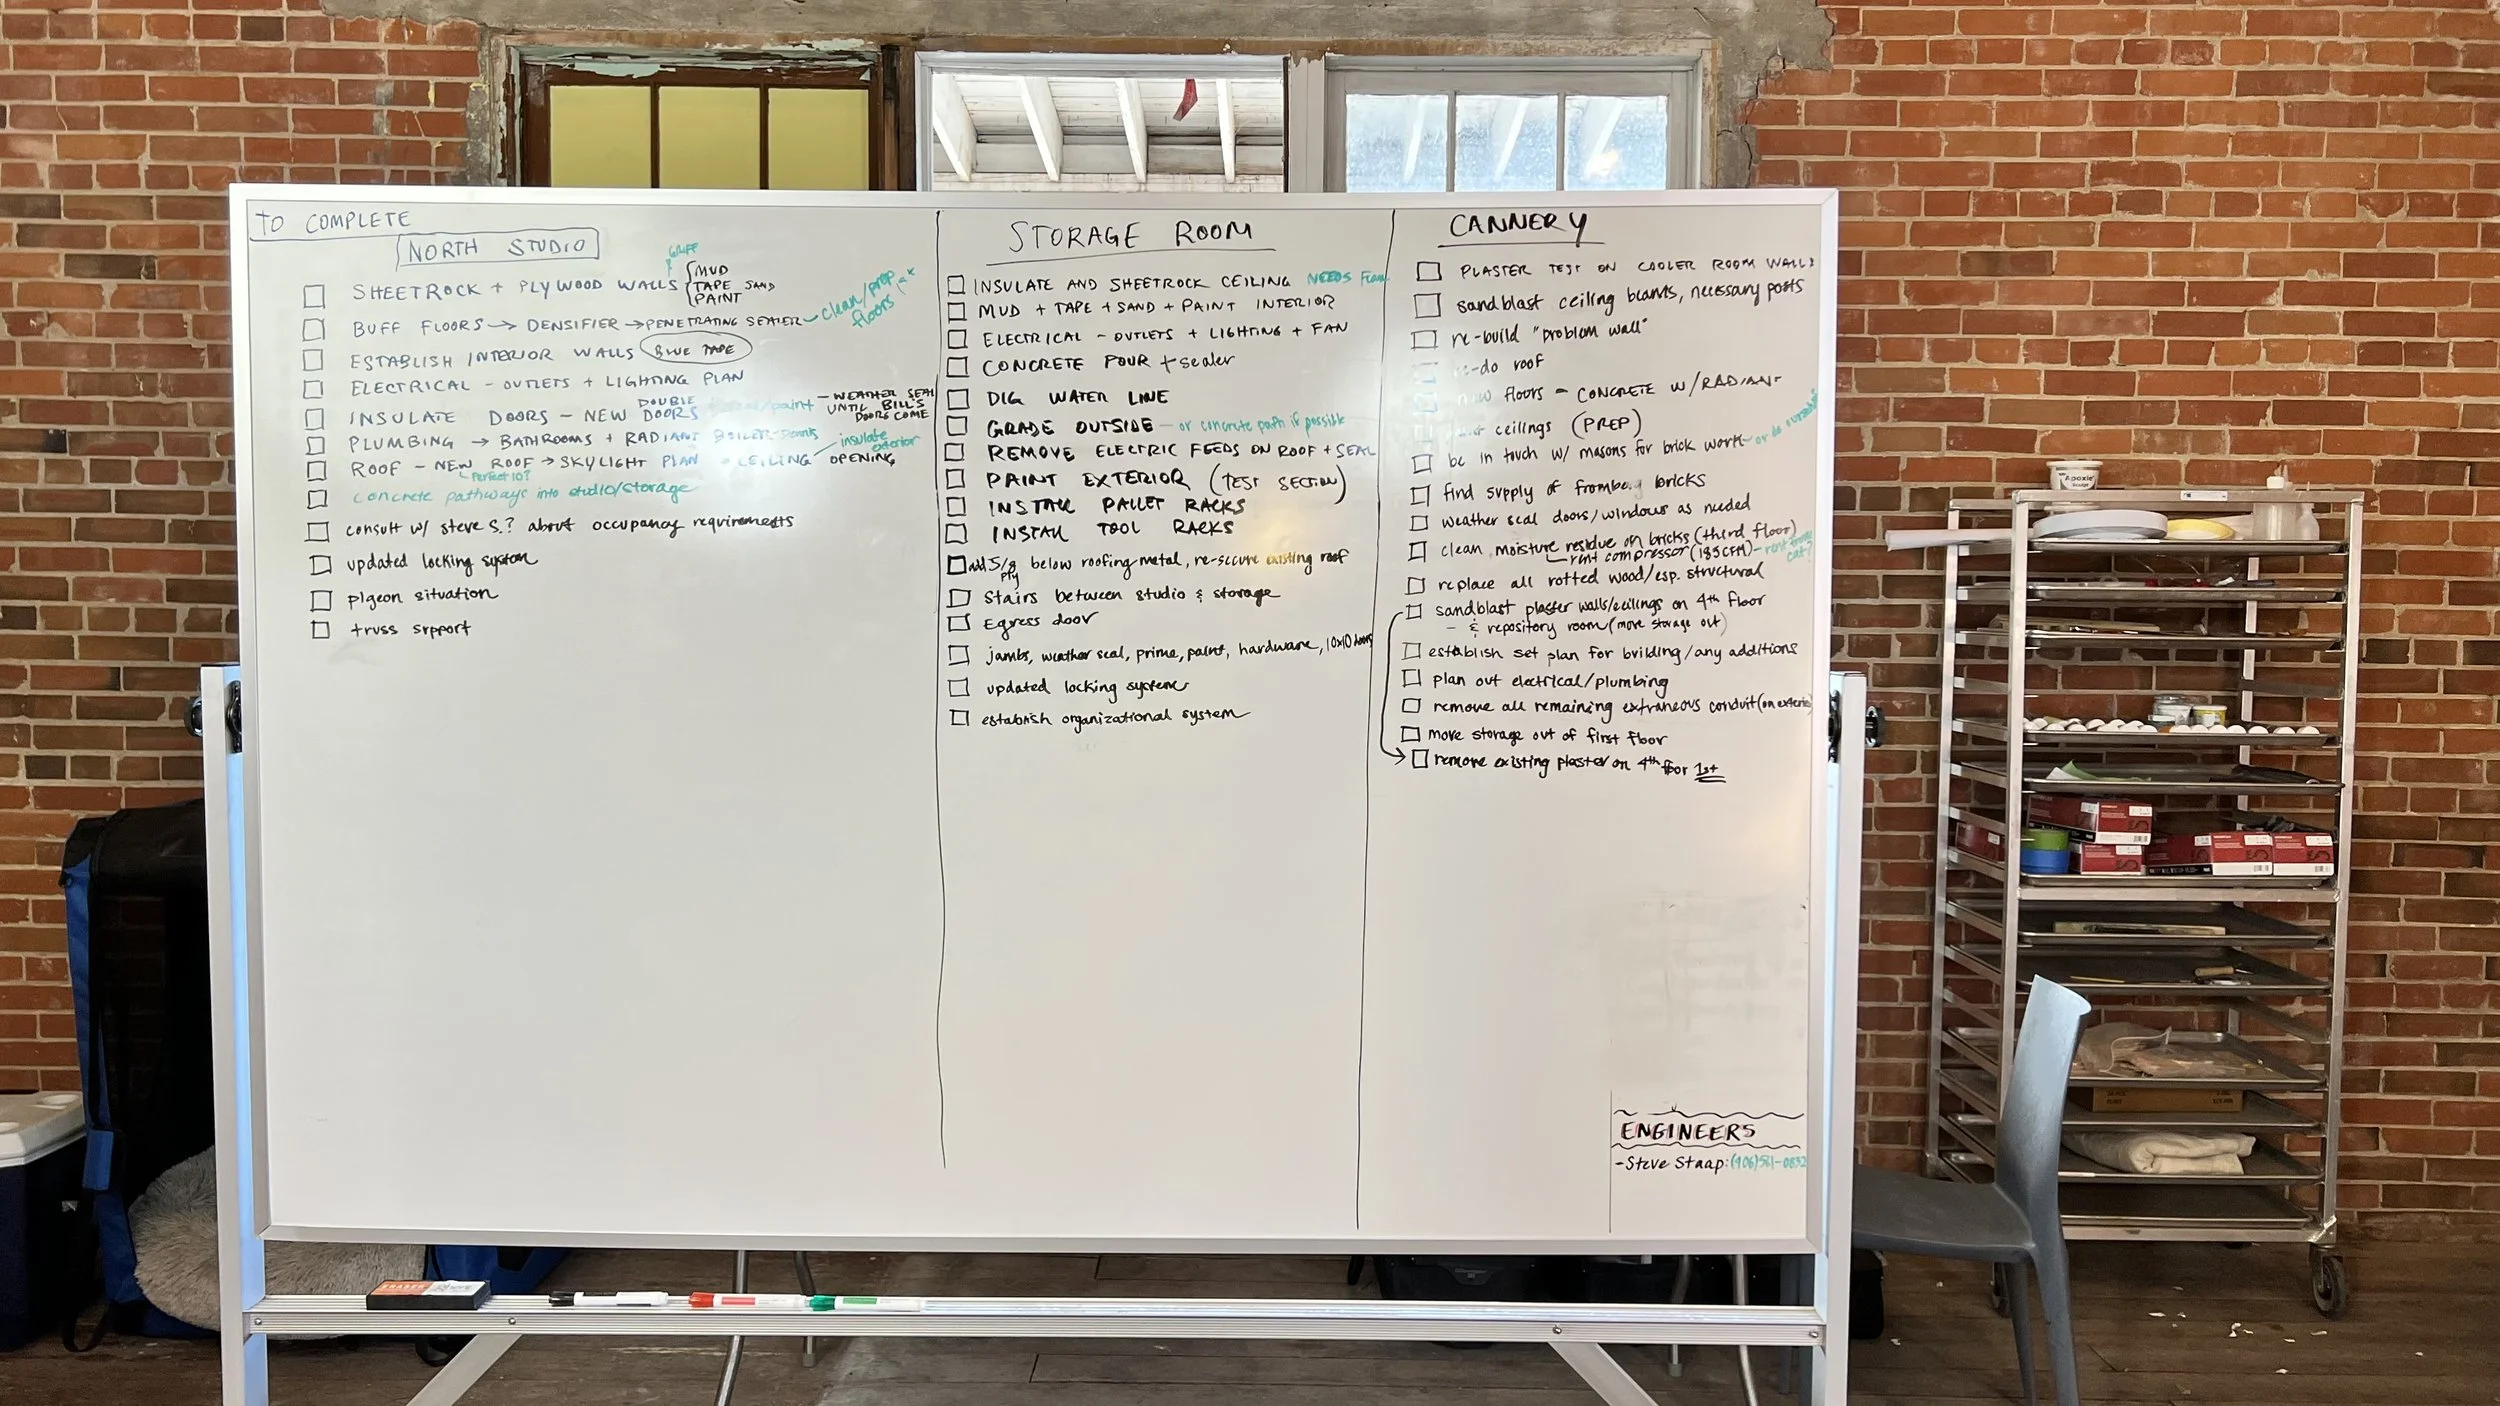 TO COMPLETE
NORTH STUDIO
SHEETROCK + PLYWOOD WALLS
GRIFF
MUD
TAPE SAND
PAINT
BUFF FLOORS → DENSIFIER → PENETRATING SEALER - clean/prep floors
ESTABLISH INTERIOR WALLS BLUE TAPE
ELECTRICAL - OUTLETS + LIGHTING PLAN
INSULATE DOORS - NEW DOUBLE DOORS /paint - WEATHER SEAL UNTIL BILL'S DOORS COME
PLUMBING → BATHROOMS + RADIANT BOILER - Dennis
ROOF - NEW ROOF → SKYLIGHT PLAN CEILING OPENING
insulate exterior
Perfect 10?
concrete pathways into studio/storage
consult w/ steve S.? about occupancy requirements
updated locking system
pigeon situation
truss support
STORAGE ROOM
INSULATE AND SHEETROCK CEILING NEEDS
MUD + TAPE + SAND + PAINT INTERIOR
ELECTRICAL - OUTLETS + LIGHTING + FAN
CONCRETE POUR + sealer
DIG WATER LINE
GRADE OUTSIDE - or concrete path if possible
REMOVE ELECTRIC FEEDS ON ROOF + SEAL
PAINT EXTERIOR (TEST SECTION)
INSTALL PALLET RACKS
INSTALL TOOL RACKS
add 5/8 ply below roofing metal, re-secure existing roof
Stairs between studio & storage
Egress door
jambs, weather seal, prime, paint, hardware, 10x10 doors
updated locking system
establish organizational system
CANNERY
PLASTER TEST ON COOLER ROOM WALLS
sandblast ceiling beams, necessary posts
re-build "problem wall"
re-do roof
new floors - CONCRETE W/RADIANT
ceilings (PREP)
be in touch w/ masons for brick work - or do ourselves
find supply of fromberg bricks
weather seal doors/windows as needed
clean moisture residue on bricks (third floor)
rent compressor (185CFM) - rent from cat?
replace all rotted wood/esp. structural
sandblast plaster walls/ceilings on 4th floor
- & repository room (move storage out)
establish set plan for building/any additions
plan out electrical/plumbing
remove all remaining extraneous conduit (on exterior)
more storage out of first floor
remove existing plaster on 4th floor 1st
ENGINEERS
- Steve Staap: (406) 581-0832
Apoxie
ERASER